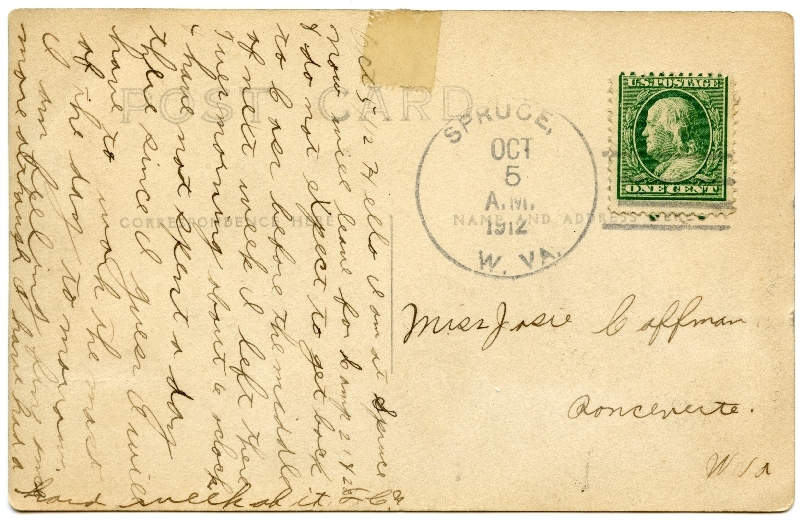 POST CARD
CORRESPONDENCE HERE
NAME AND ADDRESS HERE
Oct 5/12 Hello I am at Spruce
now will leave for Camp 21 & 28
I do not expect to get back
to Cass before the middle
of next week I left there
Tues morning about 6 oclock
& have not spent a day
there since I guess I will
have to work the most
of the day to morrow.
I am feeling fine and
more although I have had a
hard week at it
SPRUCE,
OCT
5
A.M.
1912
W. VA.
U.S. POSTAGE
ONE CENT
Miss Josie Coffman
Ronceverte.
W Va